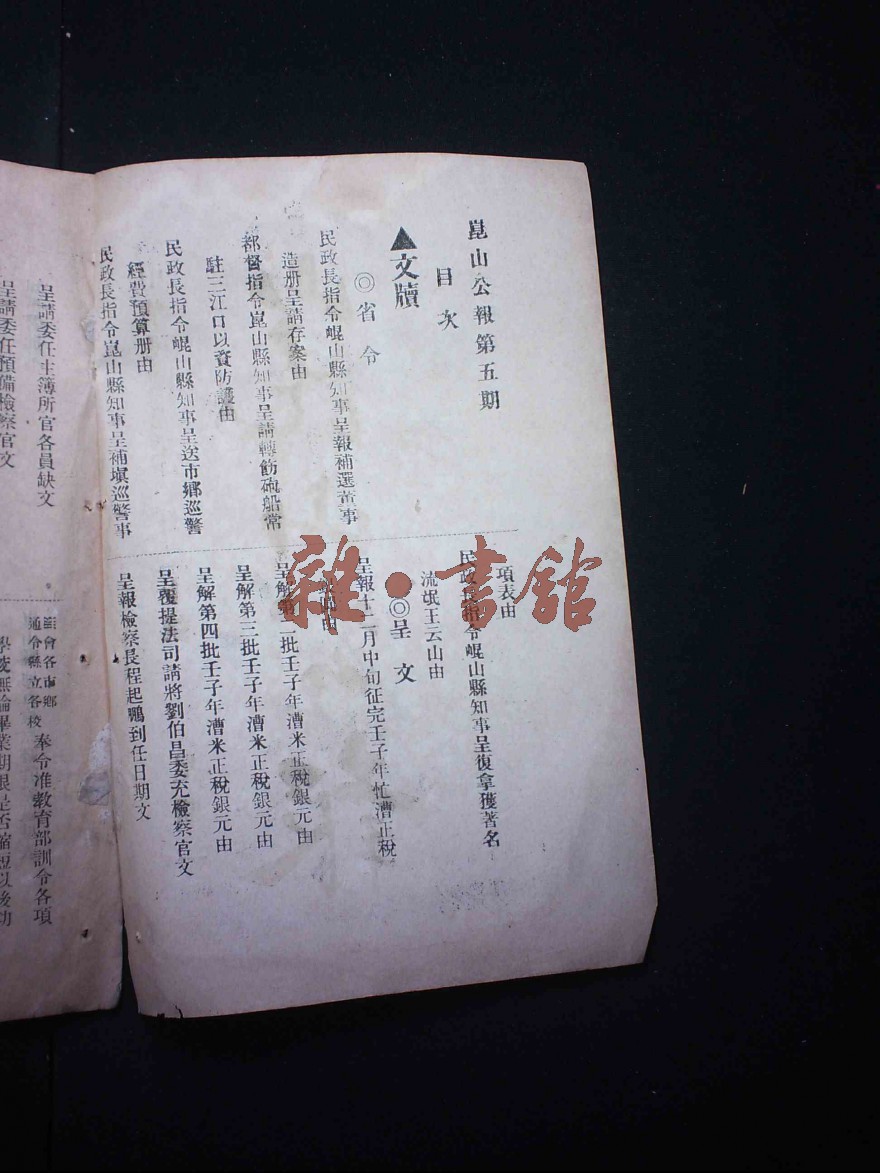 崑山公報第五期
目次
▲文牘
◎省令
民政長指令崐山縣知事呈報補選董事
造册呈請存案由
都督指令崑山縣知事呈請轉飭砲船常
駐三江口以資防護由
民政長指令崐山縣知事呈送市鄉巡警
經費預算册由
民政長指令崑山縣知事呈補塡巡警事
項表由
民政長指令崐山縣知事呈復拿獲著名
流氓王云山由
◎呈文
呈報十二月中旬征完壬子年忙漕正稅
由
呈解第二批壬子年漕米正稅銀元由
呈解第三批壬子年漕米正稅銀元由
呈解第四批壬子年漕米正稅銀元由
呈覆提法司請將劉伯昌委充檢察官文
呈報檢察長程起鶚到任日期文
呈請委任主簿所官各員缺文
呈請委任預備檢察官文
照會各市鄉
通令縣立各校
奉令准敎育部訓令各項
學校無論畢業期限是否縮短以後切
雜·書館